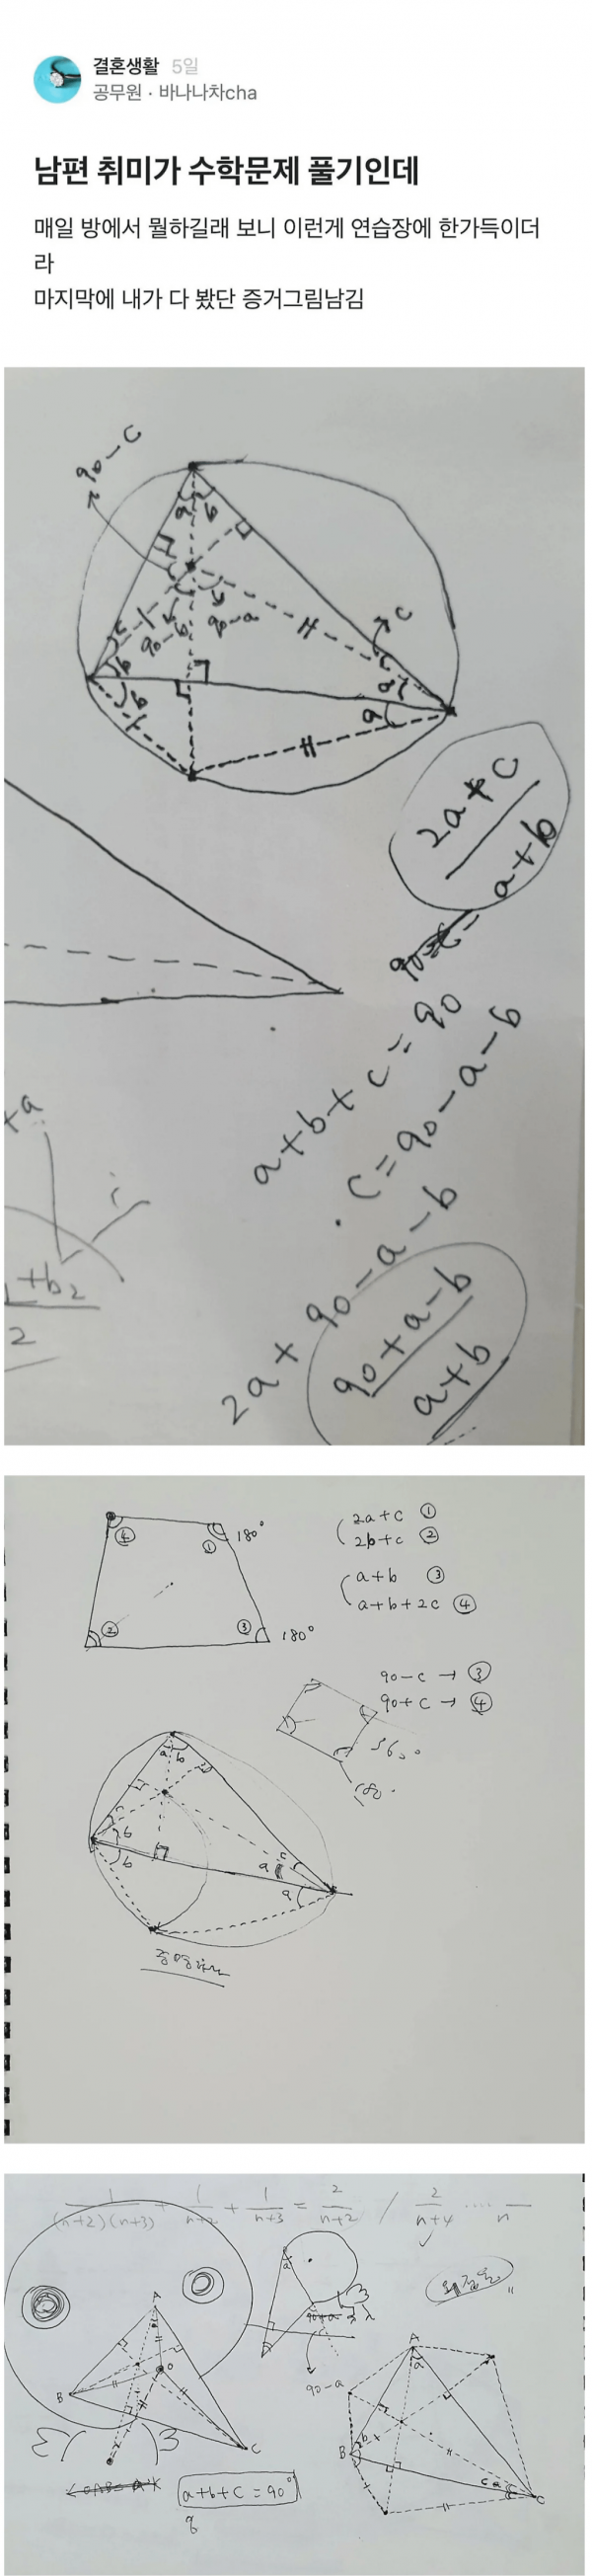 결혼생활 5일
공무원 · 바나나차cha
남편 취미가 수학문제 풀기인데
매일 방에서 뭘하길래 보니 이런게 연습장에 한가득이더
라
마지막에 내가 다 봤단 증거그림남김
90-c
a
90-a
c
b
a
2a+c
a+b
a+b+c=90
c=90-a-b
2a+90-a-b
90+a-b
a+b
+b2
2
④ ① 180°
② ③ 180°
2a+c ①
2b+c ②
a+b ③
a+b+2c ④
90-c → ③
90+c → ④
360°
180°
a b
c
b
b
c
a
a
1/(n+2)(n+3) + 1/n+2 + 1/n+3 = 2/n+2 / 2/n+4 .... n
A
B
C
O
a
90-a
a+b+c=90°
A
a
B
b
x
c a
C